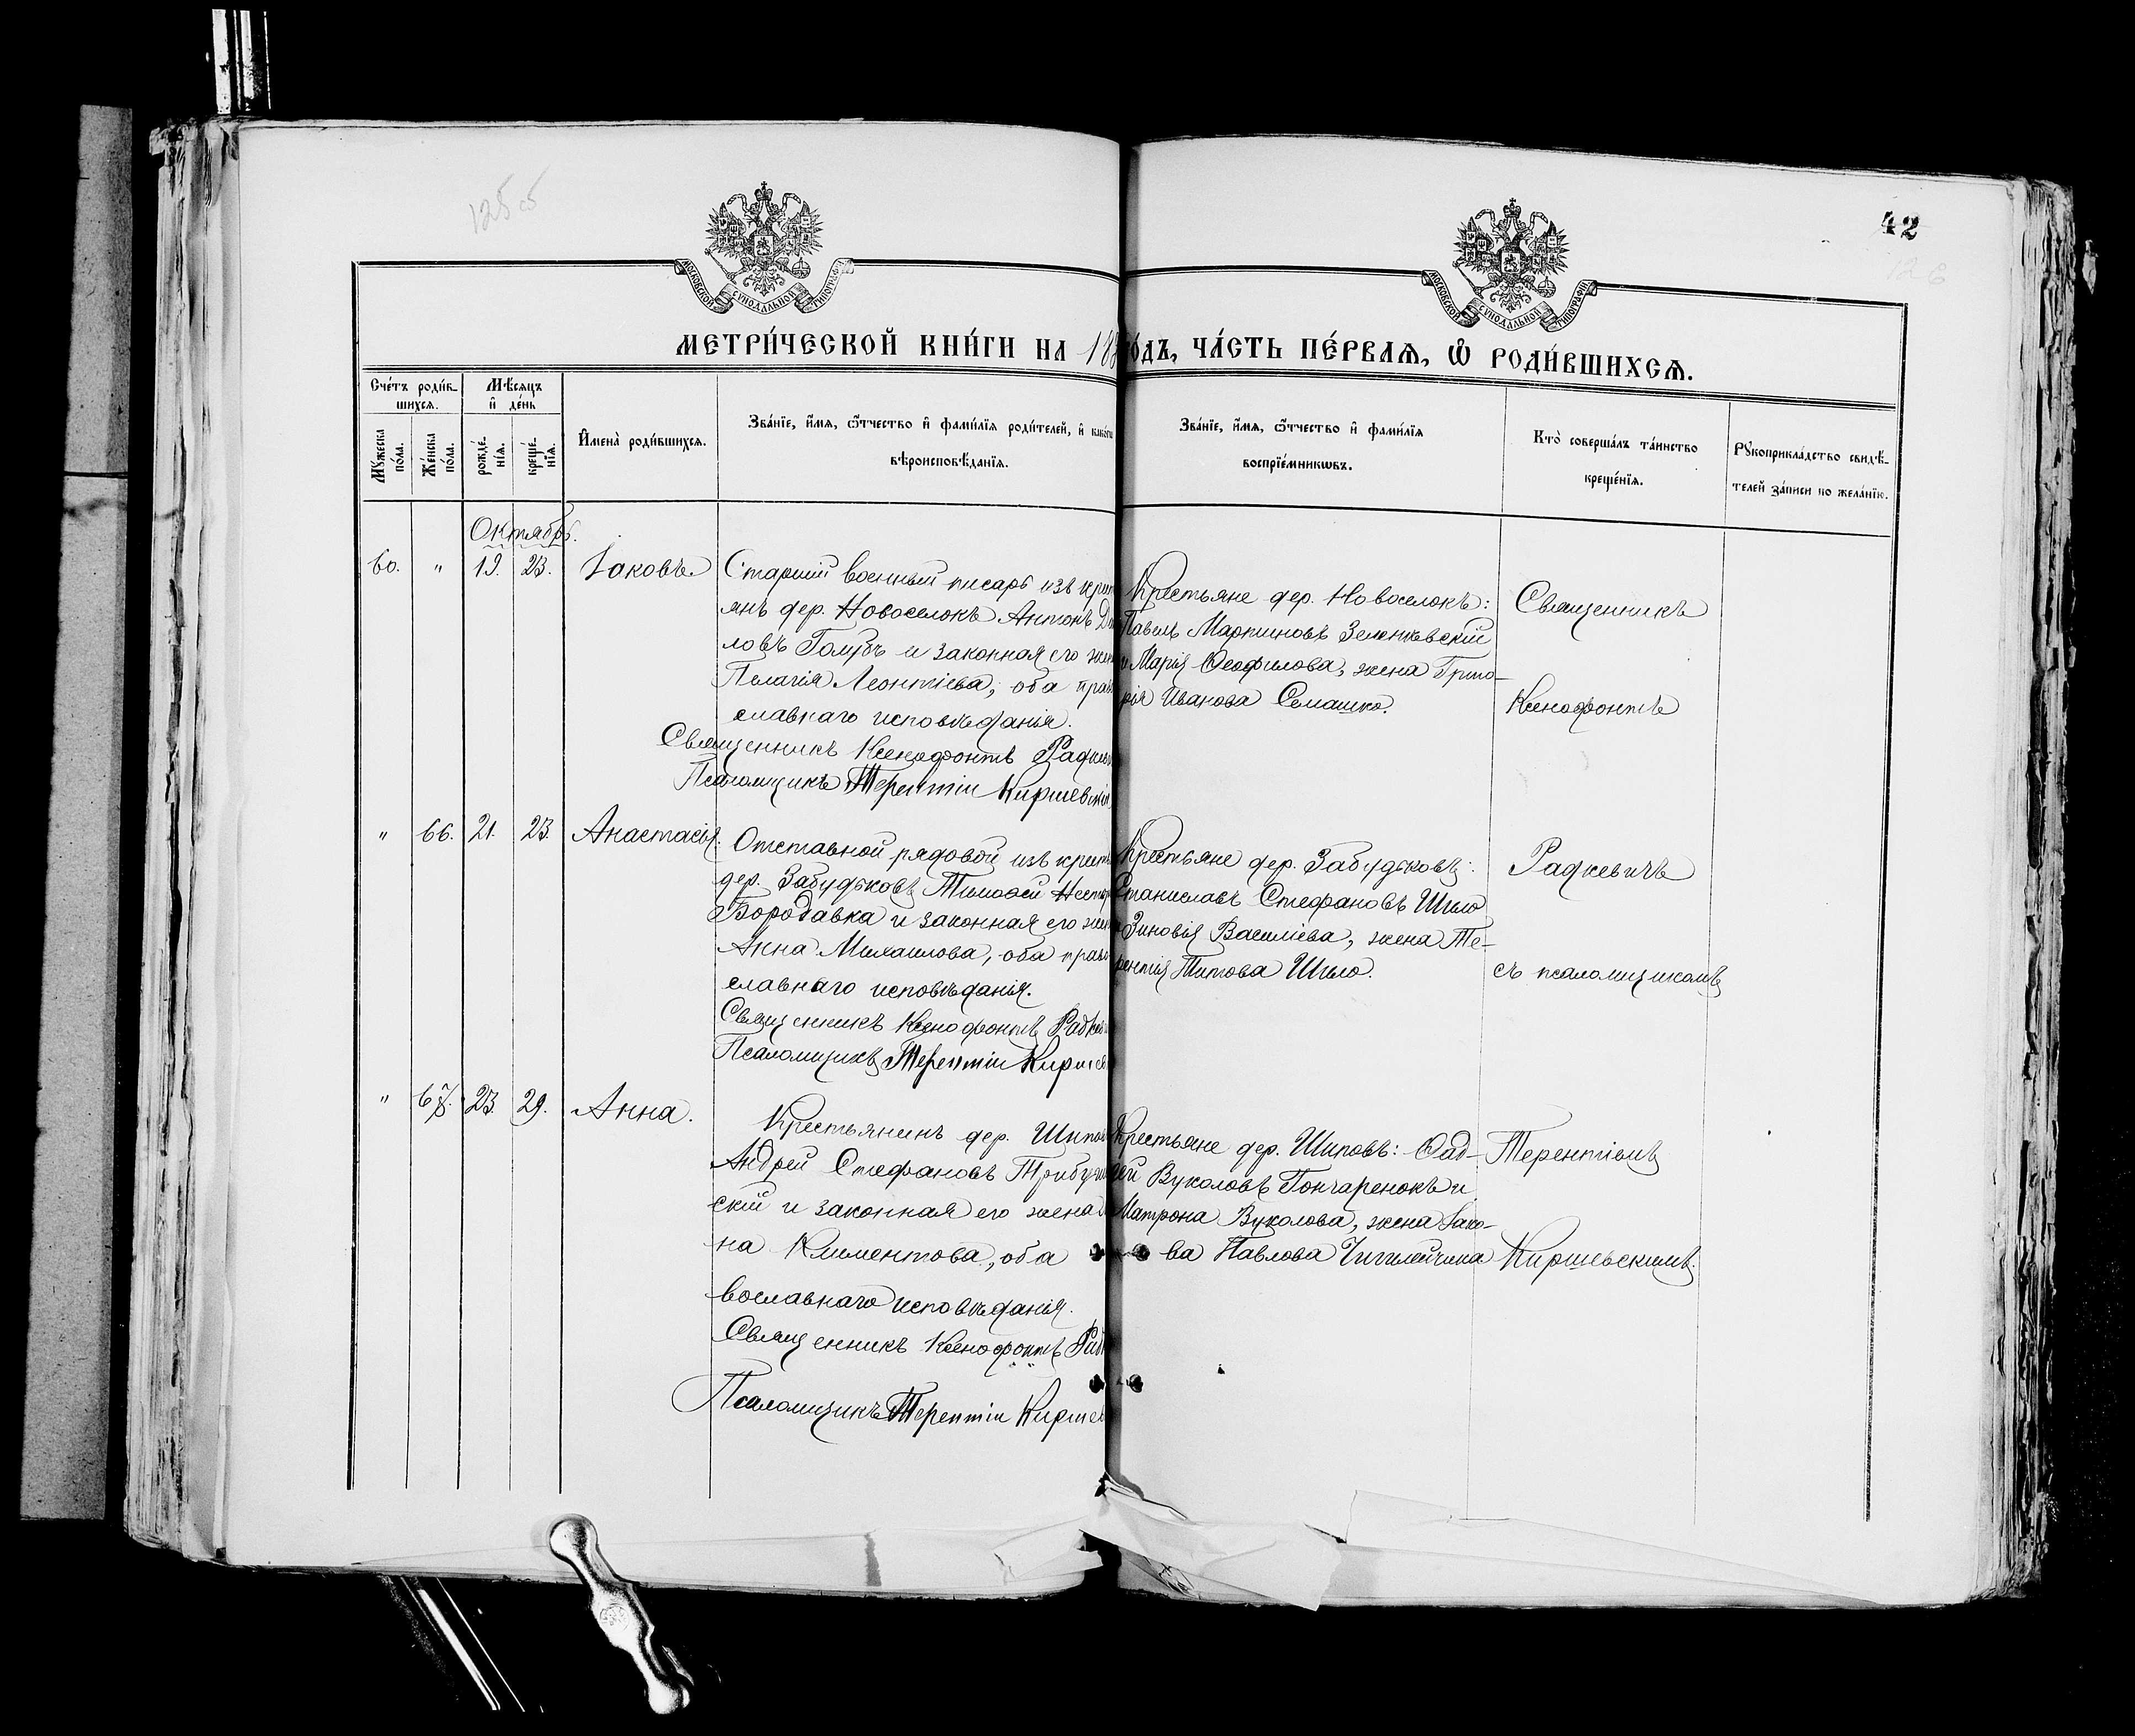 125 об
42
126
МОСКОВСКОЙ СУНОДАЛЬНОЙ ТИПОГРАФІИ
МОСКОВСКОЙ СУНОДАЛЬНОЙ ТИПОГРАФІИ
МЕТРИ́ЧЕСКОЙ КНИ́ГИ НА 188
ОДЪ, ЧА́СТЬ ПЕ́РВАѦ, Ѡ҆ РОДИ́ВШИХСѦ.
Сче́тъ роди́в-
шихсѧ.
Мѣ́сѧцъ
и҆ де́нь
Мꙋ́жеска по́ла.
Же́нска по́ла.
рожде́-
нїѧ.
креще́-
нїѧ.
И҆мена̀ роди́вшихсѧ.
Зва́нїе, и҆́мѧ, ѻ҆́тчество и҆ фами́лїѧ роди́телей, и҆ како́гѡ
вѣроисповѣ́данїѧ.
Зва́нїе, и҆́мѧ, ѻ҆́тчество и҆ фами́лїѧ
воспрїе́мникѡвъ.
Кто̀ соверша́лъ та́инство
креще́нїѧ.
Рꙋкоприкла́дство свидѣ́-
телей за́писи по жела́нїю.
Октябрь.
60. " 19. 23. Іаковъ
Старшій военный писарь изъ крест
янъ дер. Новоселокъ Антонъ
ловъ Голубъ и законная его жен
Пелагія Леонтіева, оба прав
славнаго исповѣданія.
Священникъ Ксенофонтъ Радкев
Псаломщикъ Терентій Киршевскій
Крестьяне дер. Новоселокъ:
Павелъ Мартиновъ Зеленкевскій
и Марія Ѳеофилова, жена Григо-
рія Иванова Семашко.
Священникъ
Ксенофонтъ
" 66. 21. 23. Анастасія.
Отставной рядовой изъ крест
дер. Забудьковъ Тимоѳей Нестер
Бородавка и законная его жен
Анна Михаилова, оба право
славнаго исповѣданія.
Священникъ Ксенофонтъ Радкев
Псаломщикъ Терентій Киршев
Крестьяне дер. Забудьковъ:
Станиславъ Стефановъ Шило
Зиновія Василіева, жена Те-
рентія Титова Шило.
Радкевичъ
съ псаломщикомъ
" 67. 23. 29. Анна.
Крестьянинъ дер. Шипов
Андрей Стефановъ
скій и законная его жена
на Климентова, оба
вославнаго исповѣданія.
Священникъ Ксенофонтъ Рад
Псаломщикъ Терентій Киршев
Крестьяне дер. Шиповъ: Ѳад-
дей Вуколовъ Гончаренокъ и
Матрона Вуколова, жена Іако-
ва Павлова
Терентіемъ
Киршевскимъ.